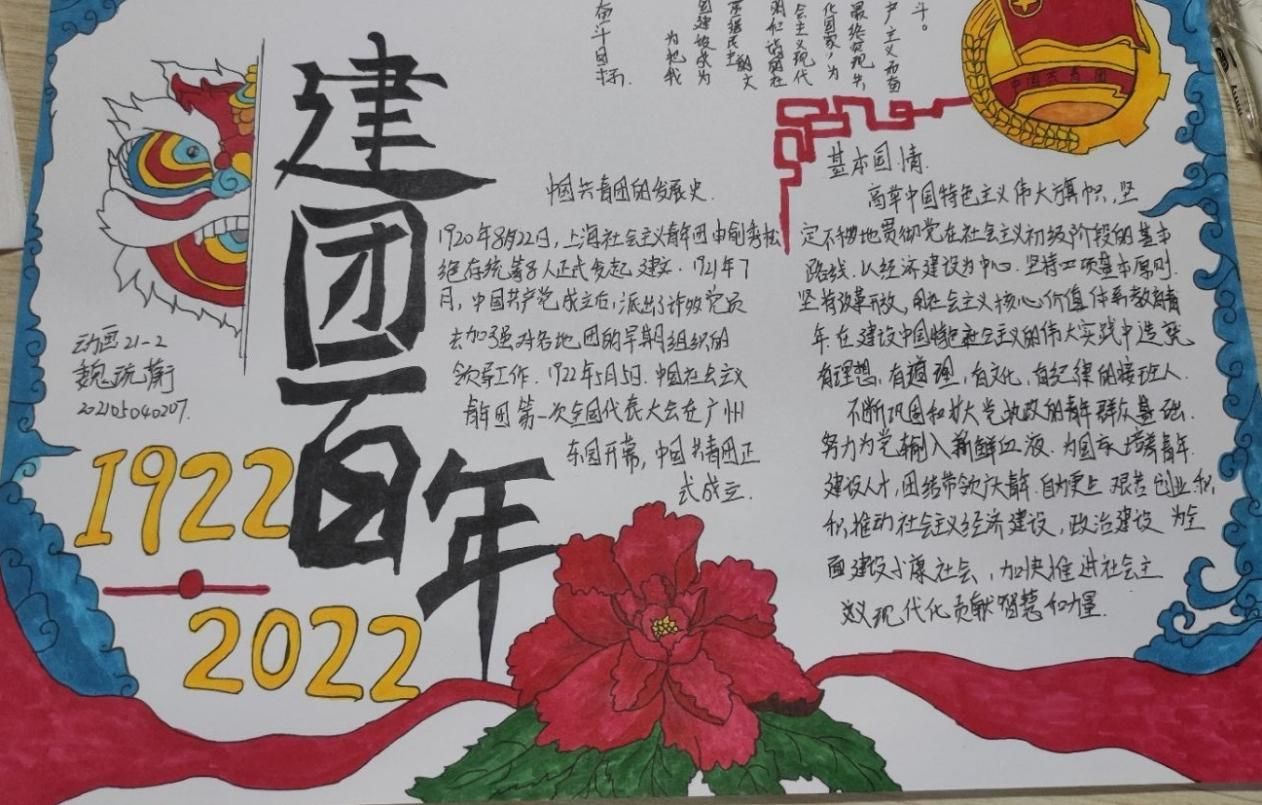 建团百年
1922
2022
动画21-2
202105040207.
奋斗目标.
为把我
国建设成为
斗。
中国共青团
中国共青团的发展史.
1920年8月22日,上海社会主义青年团由俞秀松
等8人正式发起建立.1921年7
月,中国共产党成立后,派出了许多党员
去加强对各地团的早期组织的
领导工作.1922年5月5日.中国社会主义
青年团第一次全国代表大会在广州
东园开幕,中国共青团正
式成立.
基本国情.
高举中国特色主义伟大旗帜,坚
定不移地贯彻党在社会主义初级阶段的基本
路线.以经济建设为中心.坚持四项基本原则.
坚持改革开放,用社会主义核心价值体系教育青
年.在建设中国特色社会主义的伟大实践中造就
有理想,有道理,有文化,有纪律的接班人.
不断巩固和扩大党执政的青年群众基础.
努力为党输入新鲜血液.为国家培养青年
建设人才,团结带领广大青年.自力更生 艰苦创业 积
积推动社会主义经济建设,政治建设 为全
面建设小康社会,加快推进社会主
义现代化贡献智慧和力量.